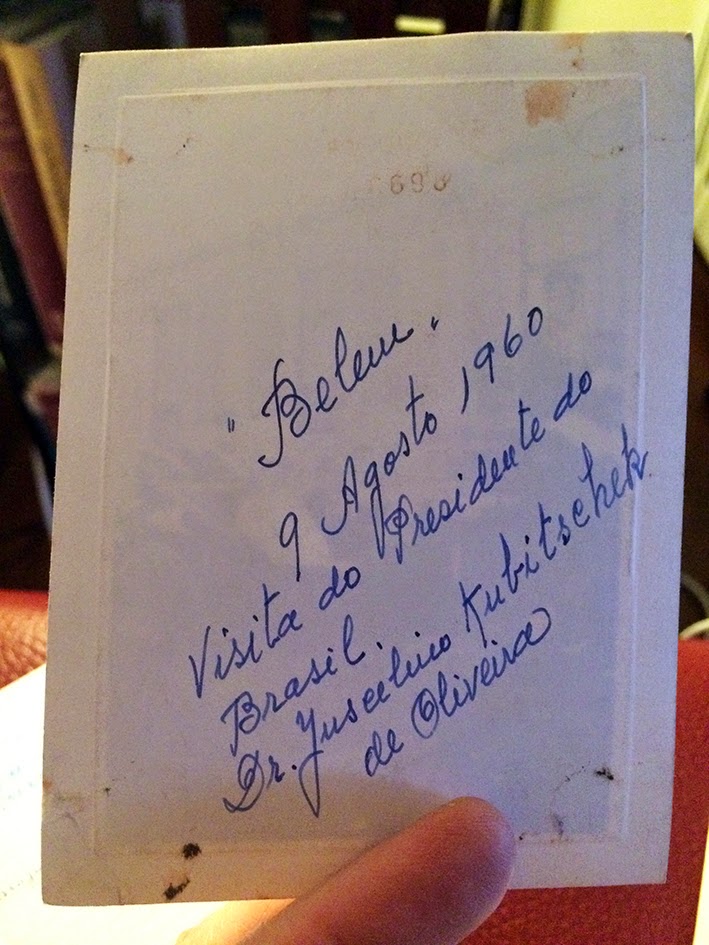 698
"Belem"
9 Agosto 1960
Visita do Presidente do
Brasil.
Dr. Juscelino Kubitschek
de Oliveira